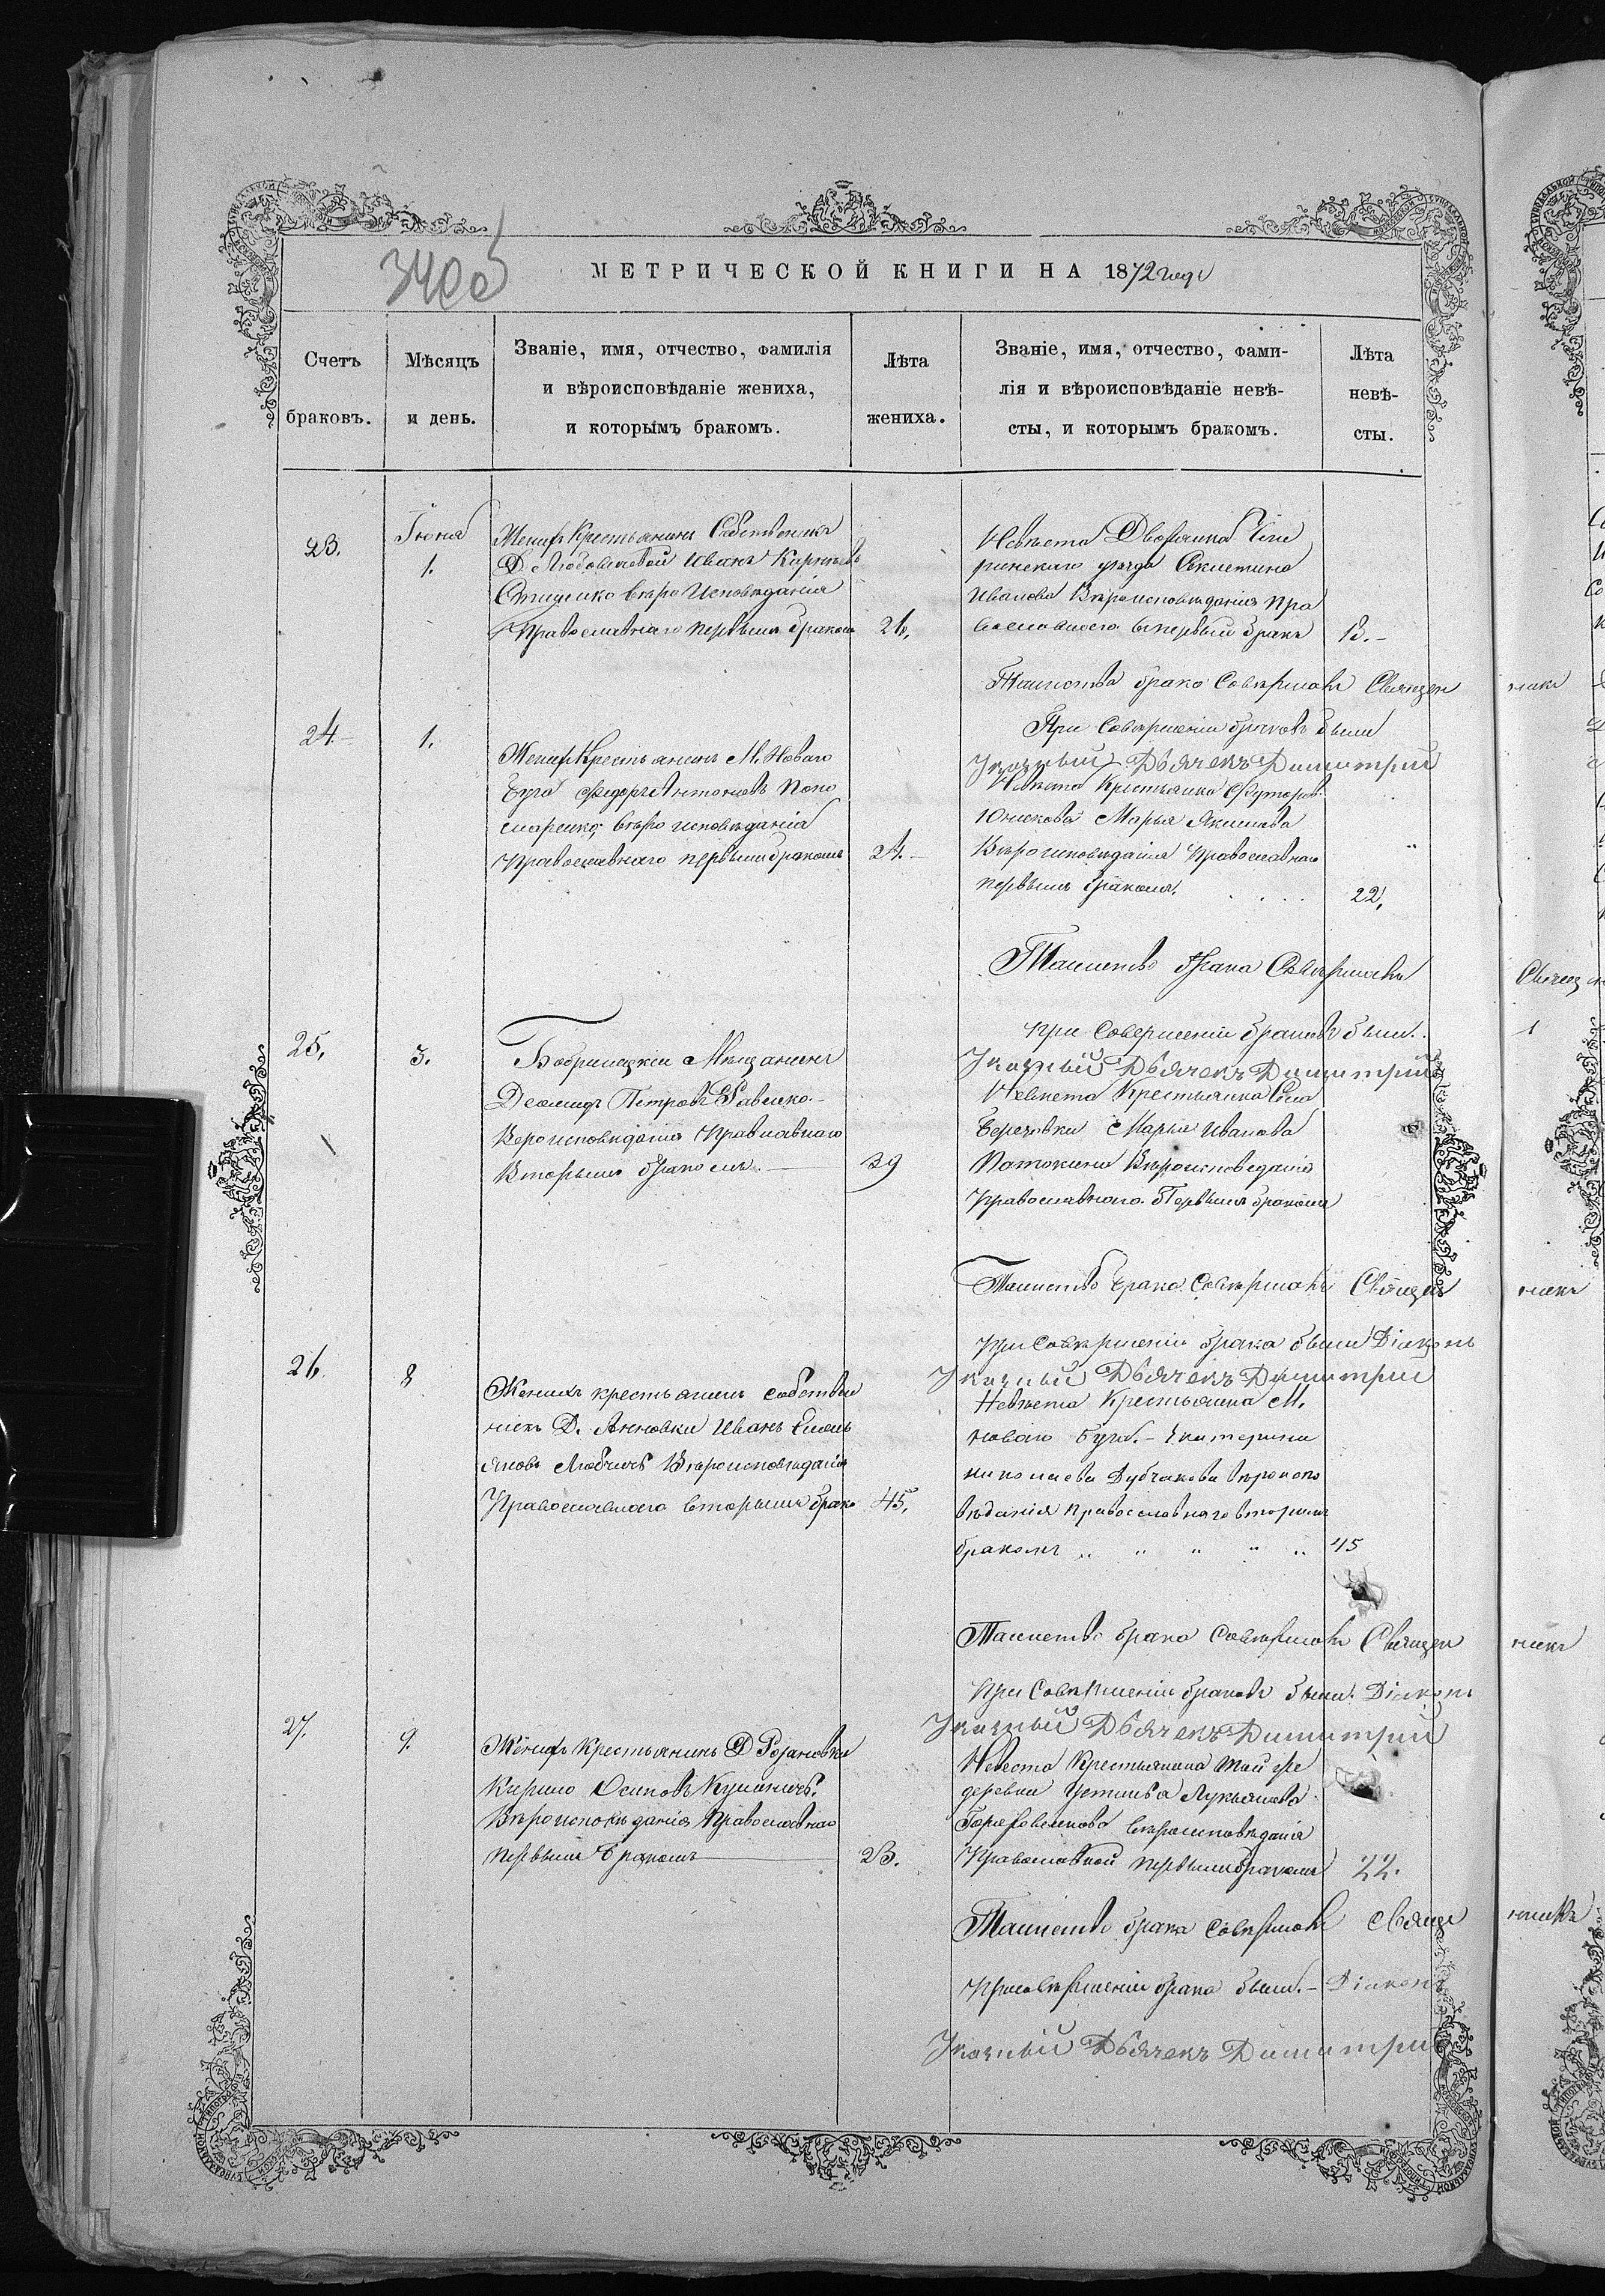 340об
МЕТРИЧЕСКОЙ КНИГИ НА 1872 года
Счетъ браковъ.
Мѣсяцъ и день.
Званіе, имя, отчество, фамилія
и вѣроисповѣданіе жениха,
и которымъ бракомъ.
Лѣта жениха.
Званіе, имя, отчество, фами-
лія и вѣроисповѣданіе невѣ-
сты, и которымъ бракомъ.
Лѣта невѣ-
сты.
23.
Іюня
1.
Женихъ Крестьянинъ Собственикъ
Д. Иванъ
вѣро Исповѣданія
Православнаго первымъ бракомъ
21.
Невѣста Дворянка Чіги
ринскаго уѣзда
Иванова Вѣроисповѣданія пра
вославнаго первый бракъ
18.-
Таинство брака Совѣршалъ Священ
никъ
При Совѣршеніи браковъ были
Указный Дьячекъ Димитрій
24.-
1.
Женихъ Крестьянинъ М. Новаго
Буга Федоръ Антоновъ Поно
маренко, вѣро исповѣданія
Православнаго первымъ бракомъ
24.-
Невѣста Крестьянка
Марья Якимова
Вѣроисповѣданія Православнаго
первымъ бракомъ.
22.
Таинство брака Совѣршалъ
Священ
при Совершеніи браковъ были.
Указный Дьячекъ Димитрій
25.
3.
Бобринецкіи Мѣщанинъ
Деомидъ Петровъ Савенко.-
Вероисповѣданія Православнаго
Вторымъ бракомъ.
39
Невѣста Крестьянка Села
Березовки Марія Иванова
Вѣроисповеданія
Православнаго Первымъ бракомъ
Таинство брака Совѣршалъ Священ
никъ
при Совѣршеніи брака были Діаконъ
Указный Дьячекъ Димитрій
26.
8
Женихъ крестьянинъ собствен
никъ Д. Анновки Иванъ Емель
яновъ Вѣроисповѣданія
Православнаго вторымъ брако
45.
Невѣста Крестьянка М.
Новаго Буга.- Екатерина
Николаева Дубчакова вѣроиспо
вѣданія православнаго вторымъ
бракомъ „ „ „ „ „
45
Таинство брака Совѣршалъ Священ
никъ
при Совѣршеніи браковъ были. Діаконъ
Указный Дьячекъ Димитрій
27.
9.
Женихъ Крестьянинъ Д Розановки
Кирило Осиповъ
Вѣроисповѣданія Православнаго
первымъ бракомъ
23.
Невеста Крестьянка той же
деревни Устинья Лукьянова
вѣроисповѣданія
Православной первымъ бракомъ
22.
Таинство брака Совѣршалъ Свяще
нникъ
При совѣршеніи брака были.- Діаконъ
Указный Дьячекъ Димитрій